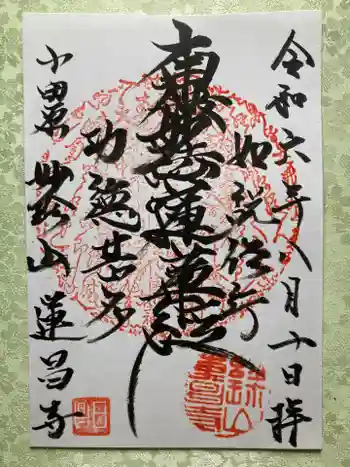 令和六年八月十日拝
如説修行
南無妙法蓮華経
功徳甚多
小田原
蓮昌寺